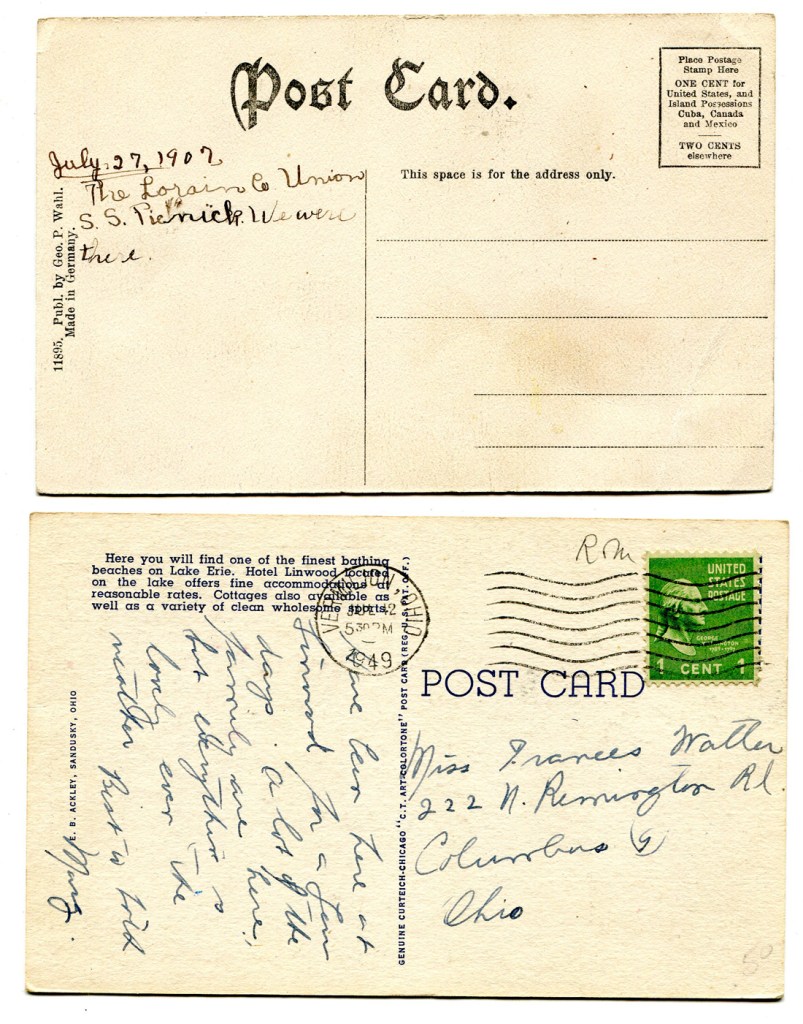 Post Card.
Place Postage
Stamp Here
ONE CENT for
United States, and
Island Possessions
Cuba, Canada
and Mexico
TWO CENTS
elsewhere
July 27, 1907
The Lorain Co Union
S. S. Picnick. We were
there.
This space is for the address only.
11895. Publ. by Geo. P. Wahl.
Made in Germany.
Here you will find one of the finest bathing
beaches on Lake Erie. Hotel Linwood located
on the lake offers fine accommodations at
reasonable rates. Cottages also available as
well as a variety of clean wholesome sports.
VERMILION, OHIO
JUL 12
5 30 PM
1949
Rom
UNITED
STATES
POSTAGE
GEORGE
WASHINGTON
1 CENT 1
POST CARD
been here at
Linwood for a few
days. A lot of the
family are here,
but everything is
lovely even the
weather
Marg.
E. B. ACKLEY, SANDUSKY, OHIO
GENUINE CURTEICH-CHICAGO "C.T. ART-COLORTONE" POST CARD (REG. U.S. PAT. OFF.)
Miss Frances Watter
222 N. Remington Rd.
Columbus (9)
Ohio
50